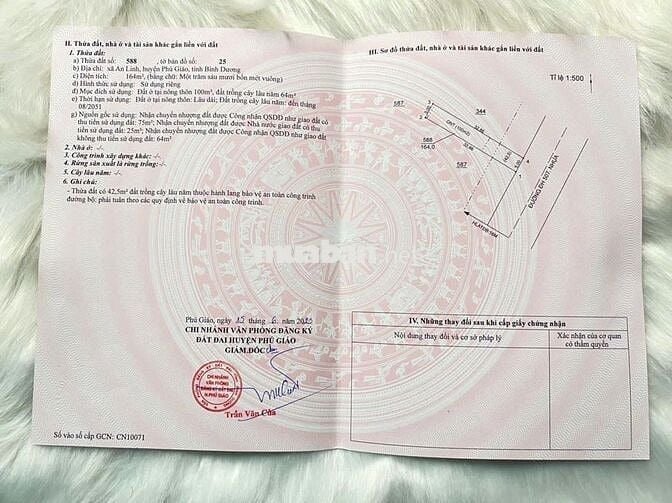 II. Thửa đất, nhà ở và tài sản khác gắn liền với đất
1. Thửa đất:
a) Thửa đất số: 588 , tờ bản đồ số: 25
b) Địa chỉ: xã An Linh, huyện Phú Giáo, tỉnh Bình Dương
c) Diện tích: 164m², (bằng chữ: Một trăm sáu mươi bốn mét vuông)
d) Hình thức sử dụng: Sử dụng riêng
đ) Mục đích sử dụng: Đất ở tại nông thôn 100m², đất trồng cây lâu năm 64m²
e) Thời hạn sử dụng: Đất ở tại nông thôn: Lâu dài; Đất trồng cây lâu năm: đến tháng
08/2051
g) Nguồn gốc sử dụng: Nhận chuyển nhượng đất được Công nhận QSDĐ như giao đất có
thu tiền sử dụng đất: 75m²; Nhận chuyển nhượng đất được Nhà nước giao đất có thu
tiền sử dụng đất: 25m²; Nhận chuyển nhượng đất được Công nhận QSDĐ như giao đất
không thu tiền sử dụng đất: 64m²
2. Nhà ở: -/-
3. Công trình xây dựng khác: -/-
4. Rừng sản xuất là rừng trồng: -/-
5. Cây lâu năm: -/-
6. Ghi chú:
- Thửa đất có 42,5m² đất trồng cây lâu năm thuộc hành lang bảo vệ an toàn công trình
đường bộ: phải tuân theo các quy định về bảo vệ an toàn công trình.
Phú Giáo, ngày 15 tháng 6 năm 2020
CHI NHÁNH VĂN PHÒNG ĐĂNG KÝ
ĐẤT ĐAI HUYỆN PHÚ GIÁO
GIÁM ĐỐC
CHI NHÁNH
VĂN PHÒNG
ĐĂNG KÝ ĐẤT ĐAI
H.PHÚ GIÁO
Trần Văn Của
Số vào sổ cấp GCN: CN10071
III. Sơ đồ thửa đất, nhà ở và tài sản khác gắn liền với đất
Tỉ lệ 1:500
587
344
588
164,0
587
ĐƯỜNG ĐH 507, NHỰA
IV. Những thay đổi sau khi cấp giấy chứng nhận
Nội dung thay đổi và cơ sở pháp lý
Xác nhận của cơ quan
có thẩm quyền
muaban.net